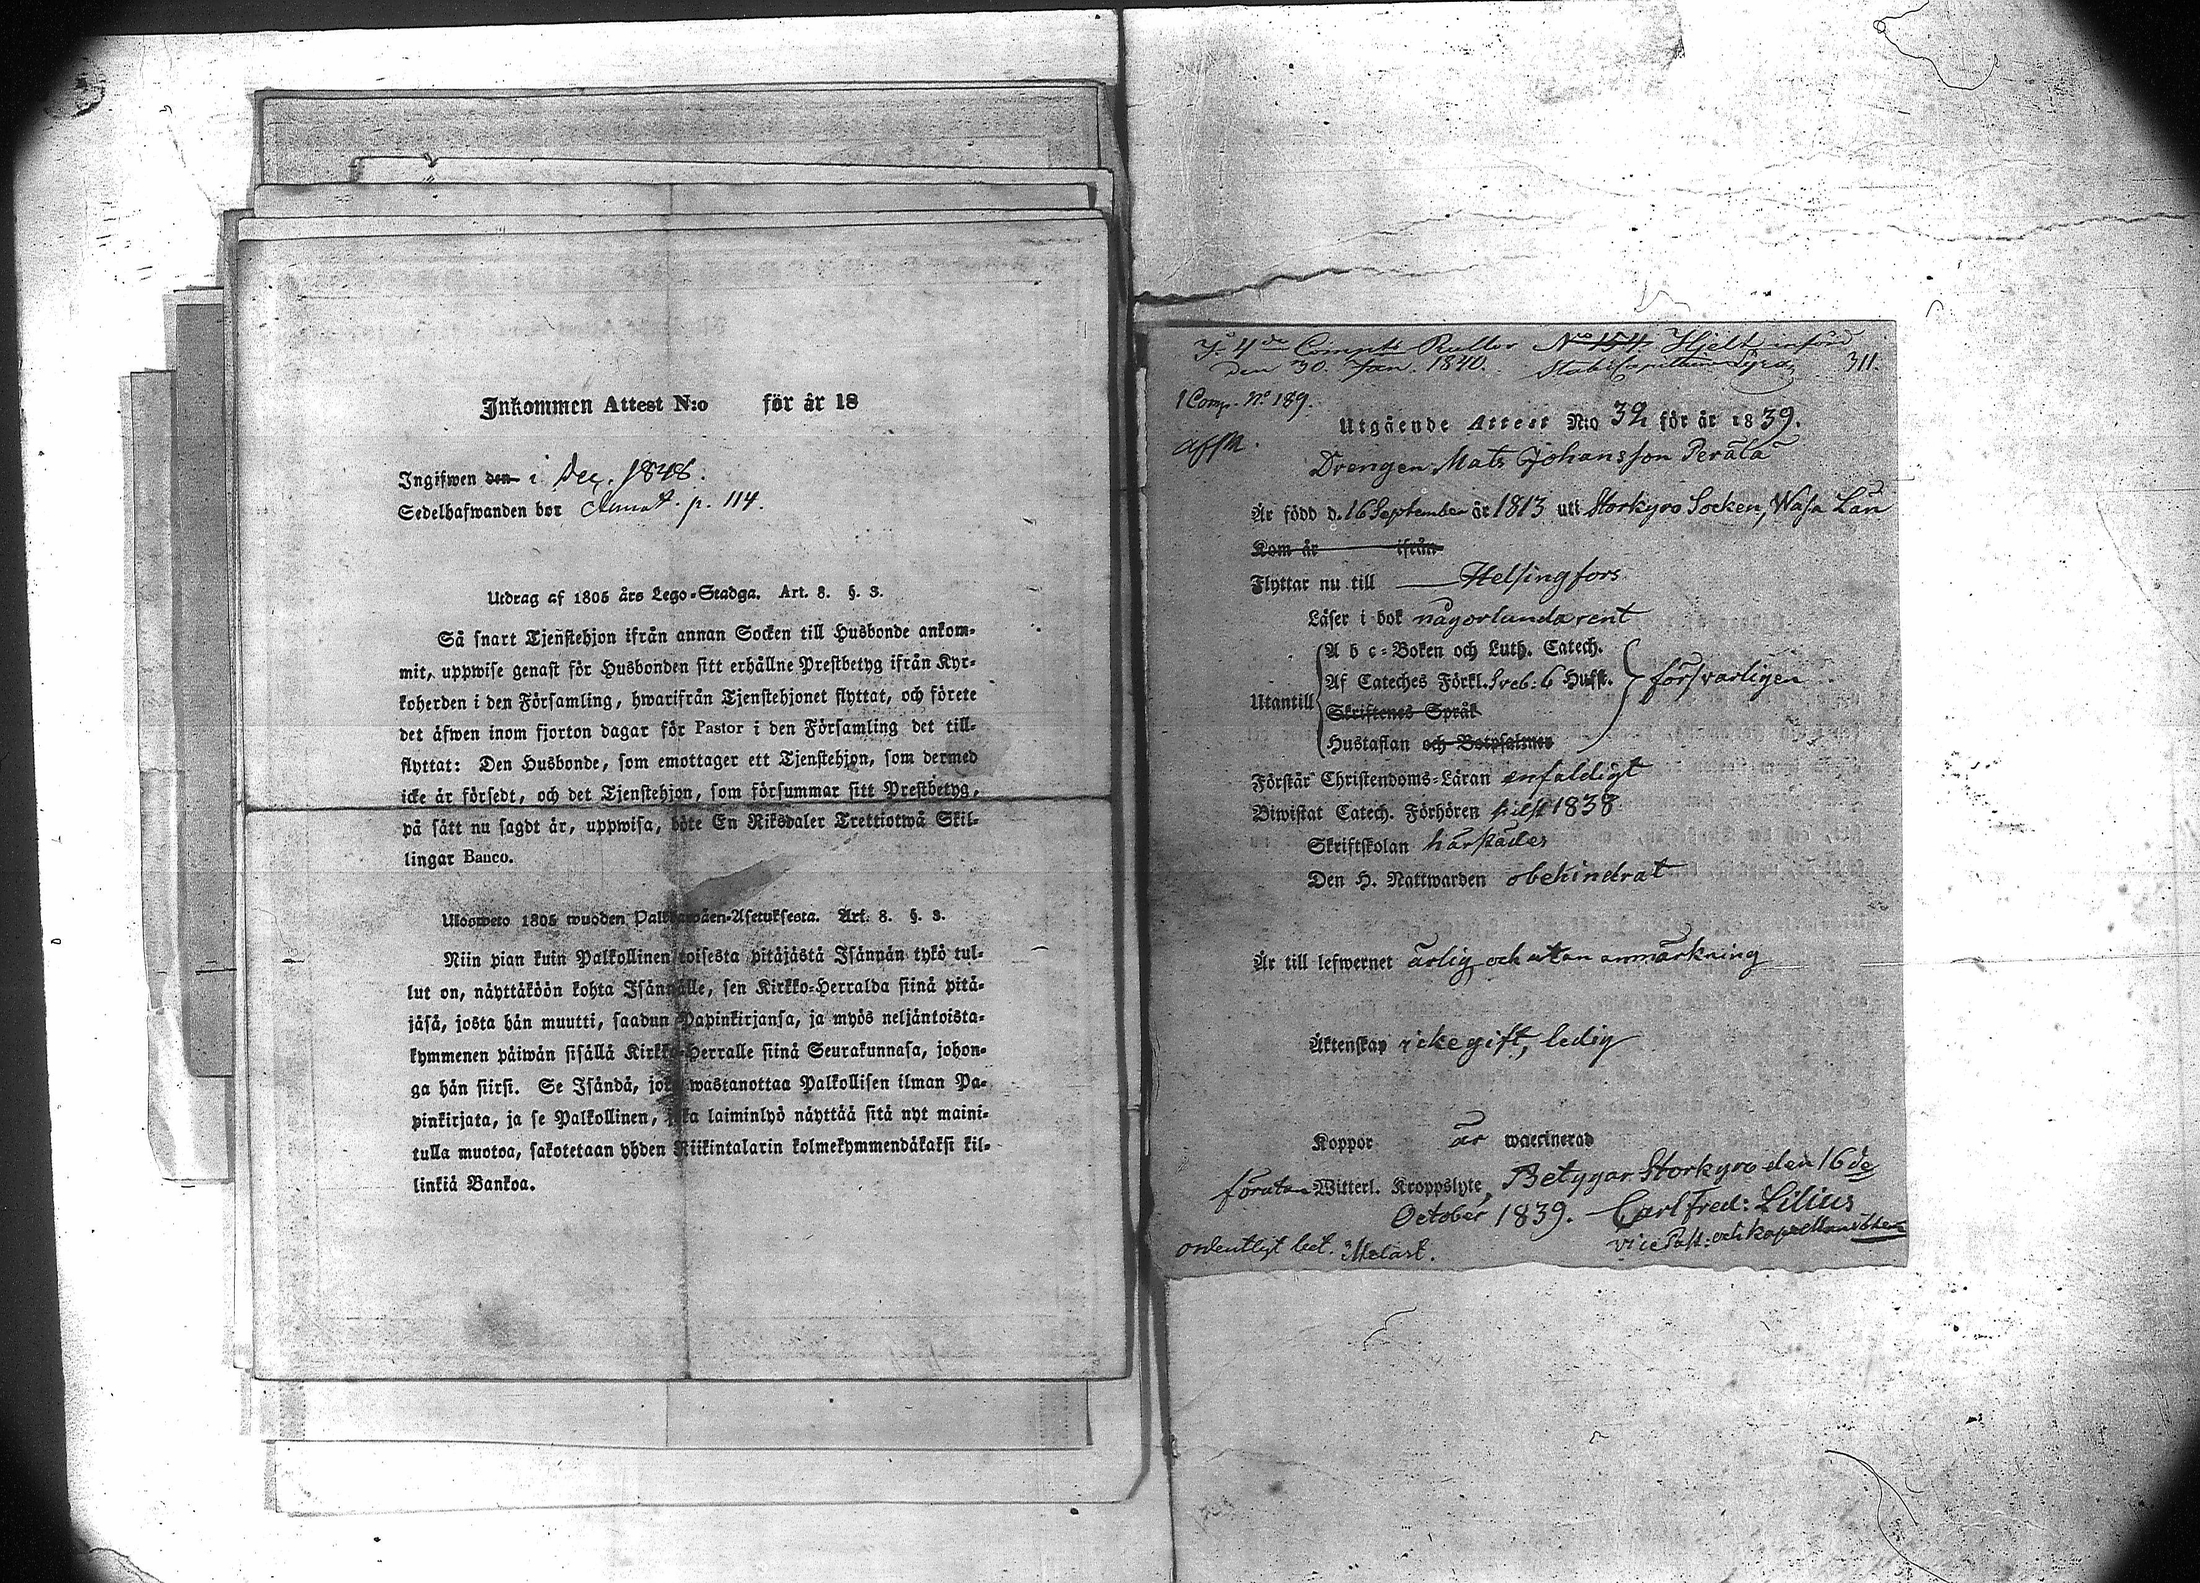 Inkommen Attest N:o för år 18
Ingifwen den i Dec. 1848.
Sedelhafwanden bor Annot. p. 114.
Utdrag af 1805 års Lego-Stadga. Art. 8. §. 3.
Så snart Tjenstehjon ifrån annan Socken till Husbonde ankom-
mit, uppwise genast för Husbonden sitt erhållne Prestbetyg ifrån Kyr-
koherden i den Församling, hwarifrån Tjenstehjonet flyttat, och förete
det äfwen inom fjorton dagar för Pastor i den Församling det till-
flyttat: Den Husbonde, som emottager ett Tjenstehjon, som dermed
icke är försedt, och det Tjenstehjon, som försummar sitt Prestbetyg,
på sätt nu sagdt är, uppwisa, böte En Riksdaler Trettiotwå Skil-
lingar Banco.
Ulosweto 1805 wuoden Palkkawäen-Asetuksesta. Art. 8. §. 3.
Niin pian kuin Palkollinen toisesta pitäjästä Isännän tykö tul-
lut on, näyttäköön kohta Isännälle, sen Kirkko-Herralda siinä pitä-
jäsä, josta hän muutti, saadun Papinkirjansa, ja myös neljäntoista-
kymmenen päiwän sisällä Kirkko-Herralle siinä Seurakunnasa, johon-
ga hän siirsi. Se Isändä, joka wastanottaa Palkollisen ilman Pa-
pinkirjata, ja se Palkollinen, joka laiminlyö näyttää sitä nyt maini-
tulla muotoa, sakotetaan yhden Riikintalarin kolmekymmendäkaksi kil-
linkiä Bankoa.
I 4de Compts Rullor No 154. Hjelt införd
den 30. Jan. 1840. StabsCapitain 311.
1 Comp. No 189.
Utgående Attest N:o 32 för år 1839.
Drengen Mats Johansson Perälä
Är född d. 16 September år 1813 uti Storkyro Socken, Wasa Län
Kom år ifrån
Flyttar nu till Helsingfors
Läser i bok någorlunda rent
A b c-Boken och Luth. Catech.
Af Cateches Förkl. Sveb: 6 Hufst. försvarligen
Utantill
Skriftenes Språk
Hustaflan och Botpsalmer
Förstår Christendoms-Läran enfaldigt
Biwistat Catech. Förhören sidst 1838
Skriftskolan härstädes
Den H. Nattwarden obehindrat
Är till lefwernet ärlig och utan anmärkning
Äktenskap icke gift, ledig
Koppor är waccinerad
förutan Witterl. Kroppslyte, Betygar Storkyro den 16de
October 1839. Carl Fred: Lilius
vice Past: och kapellans
ordentligt bet. Melart.